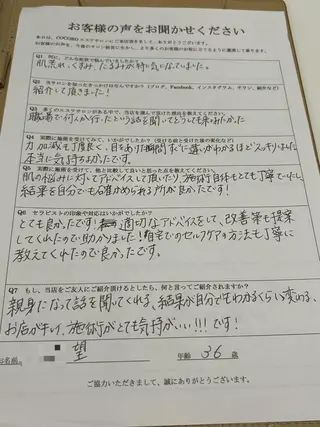 お客様の声をお聞かせください
本日は、COCOROエステサロンにご来店頂きまして、ありがとうございます。
Q1 何に、どんな症状で悩んでいましたか?
肌荒れ、くすみ、たるみが特に気になっていました。
Q2 当サロンを知ったきっかけは何ですか?(ブログ、Facebook、インスタグラム、チラシ、紹介など)
紹介して頂きました!
Q3 多くのエステサロンがある中で、当店を選んで頂けた理由を教えてください。
職場で何人か行ったという話を聞いてどうしても来てみたかった
Q4 実際に施術を受けてみて、いかがでしたか?(受ける前と受けた後の変化など)
力加減も丁度良く、目をあけた瞬間すぐに違いがわかるほどスッキリしました
本当に気持ち良かったです。
Q5 実際に施術を受けてみて、他と比べて良いと思った点を教えてください。
肌の悩みに対してアドバイスして頂いたり、施術自体もとても丁寧でしたし
結果を自分でも確かめられる所が良かったです!
Q6 セラピストの印象や対応はいかがでしたか?
とても良かったです!適切なアドバイスをして、改善策も提案
してくれたので助かりました!自宅でのセルフケアの方法も丁寧に
教えてくれたので良かったです。
Q7 もし、当店をご友人にご紹介頂けるとしたら、何と言ってご紹介されますか?
親身になって話を聞いてくれる、結果が自分でもわかるくらい変わる、
お店がキレイ、施術がとても気持がいい!!!です!
お名前 望 年齢 36 歳
ご協力いただきまして、誠にありがとうございます。